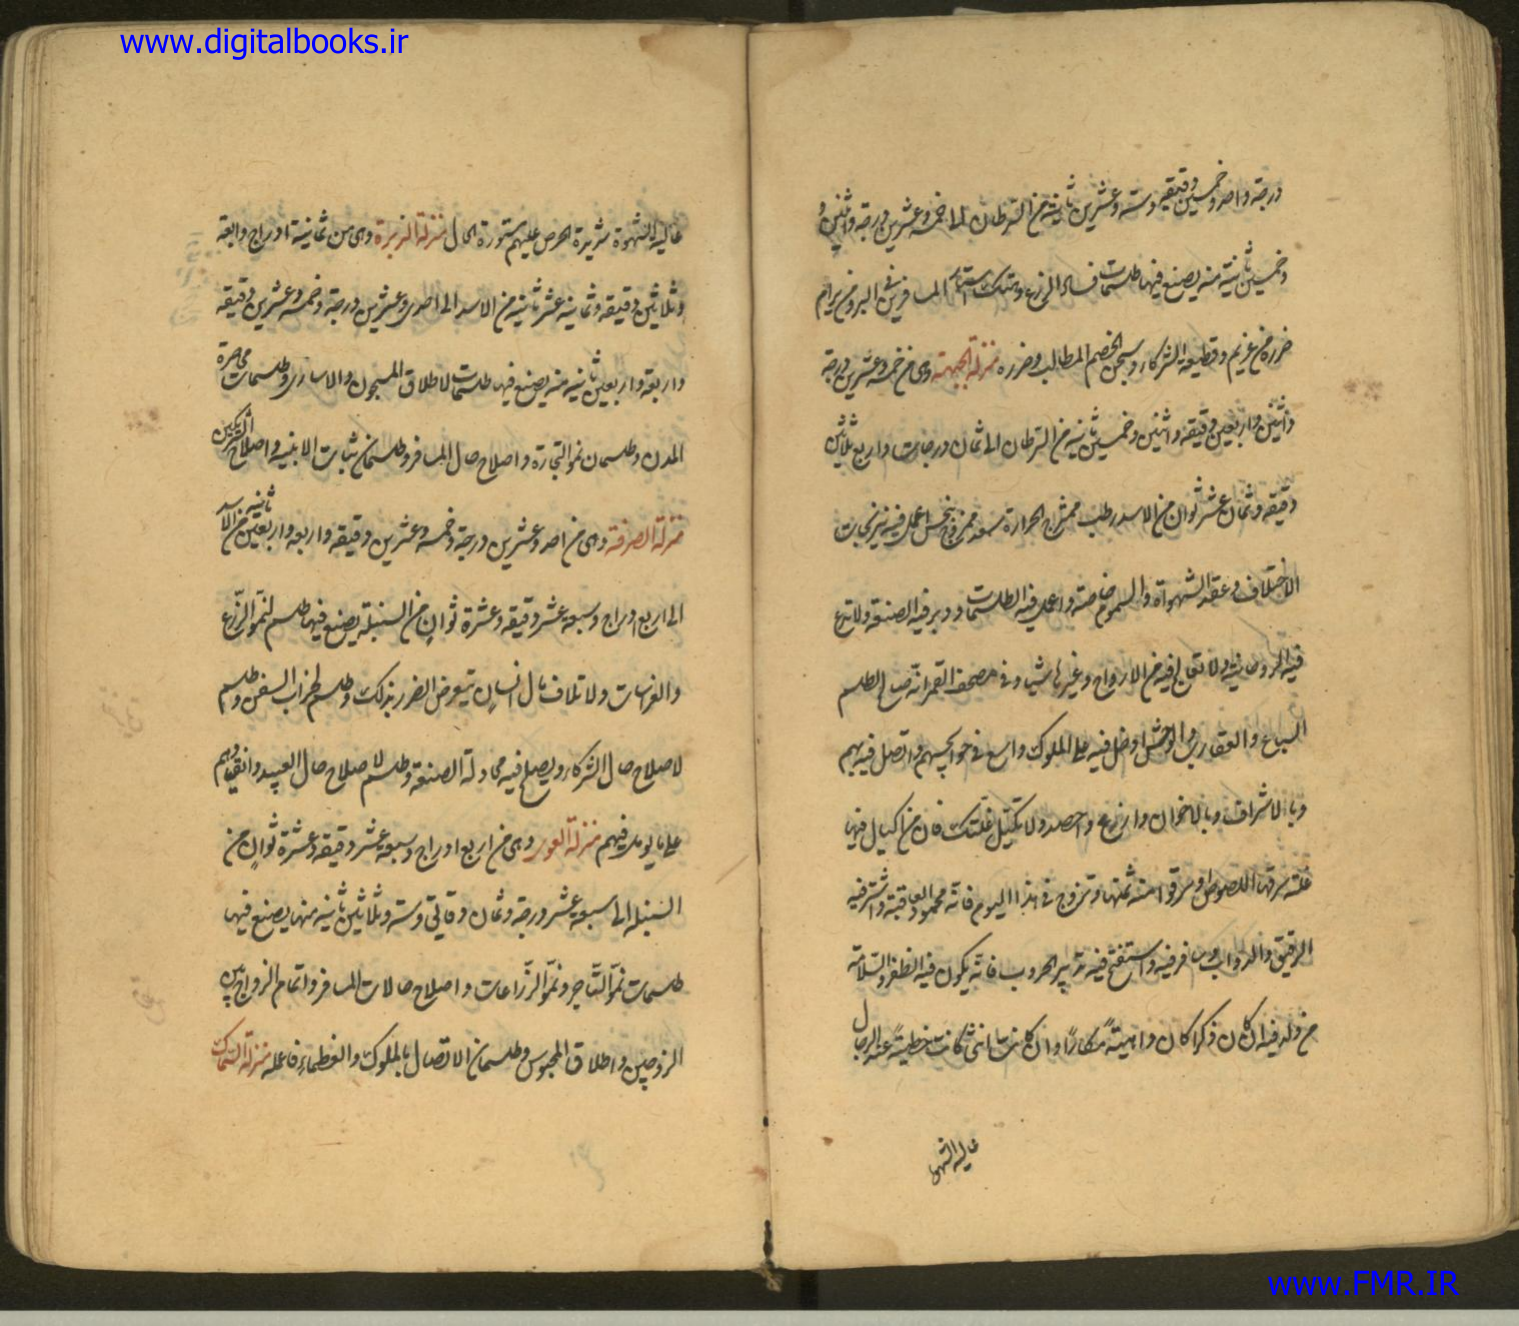 www.digitalbooks.ir
درجة واحد وخمسين دقيقه وستة وعشرين ثانية من السرطان الى خمسة وعشرين درجة واثنين و
وخمسين ثانية منه يصنع فيها طلسمات فساد الزرع وهتك استتام المسافرين في البر ومن يرام
ضرره من غريم وقطيعة الشركاء وسجن الخصم المطالب وضرره منزلة الجبهة وهى من خمسة وعشرين درجة
واثنين واربعين دقيقه واثنين وخمسين ثانية من السرطان الى ثمان درجات واربع ثلاثين
دقيقه وثمان عشر ثوان من الاسد رطب ممتزج الحرارة سعد ممزوج بنحس اعمل فيه نيرنجات
الاختلاف وعقد الشهوة والسموم خاصة واعمل فيه الطلسمات ودبر فيه الصنعة ولا تدع
فيه الروحانية ولا تعالج فيه من الارواح وغيرها شيا وفي مصحف القمر انه صالح لطلسم
السباع والعقارب والوحش ادخل فيه على الملوك واسع في حوائجهم واتصل فيه بهم
وبالاشراف وبالاخوان وازرع واحصد ولا تكتيل غلتك فان من اكتال فيها
غلته سرقها اللصوص او سرقوا منه ثمنها وتزوج في هذا اليوم فانه محمود العاقبة واشتر فيه
الرقيق والدواب وسافر فيه واستفتح فيه تدبير الحروب فانه يكون فيه الظفر والسلامة
من ولد فيه ان كان ذكرا كان داهية مكارًا وان كانت انثى كانت خطية عند الرجال
غالبة الشهوة
غالية الشهوة شريرة الحرص عليهم مستورة الحال منزلة الزبرة وهى من ثمانية ادراج واربعة
وثلاثين دقيقه وثمانية عشر ثانية من الاسد الى احدى وعشرين درجة وخمسه وعشرين دقيقه
واربعة واربعين ثانيه منه يصنع فيها طلسمات لاطلاق المسجون والاسارى وطلسمات محاصرة
المدن وطلسمان نمو التجارة واصلاح حال المسافر وطلسمان ثبات الابنيه واصلاح الشريكين
منزلة الصرفة وهى من احد وعشرين درجة وخمسه وعشرين دقيقه واربعه واربعين ثانيه من الاسد
الى اربع ادراج وسبعة عشر دقيقه وعشرة ثوان من السنبله يصنع فيها طلسم لنمو الزرع
والغراسات ولاتلاف مال انسان تيعوض الضرر بذلك وطلسم لخراب السفن وطلسم
لاصلاح حال الشركاء ويصلح فيه محاولة الصنعة وطلسم لاصلاح حال العبيد وانقيادهم
على ما يومل فيهم منزلة العوا وهى من اربع ادراج وسبعة عشر دقيقه وعشرة ثوانٍ من
السنبله الى سبعة عشر درجة وثمان دقايق وستة وثلاثين ثانيه منها يصنع فيها
طلسمات نمو التاجر ونمو الزراعات واصلاح حالات المسافر واتمام الزواج بين
الزوجين واطلاق المحبوس وطلسمان الاتصال بالملوك والعظماء فاعله منزلة السماك
www.FMR.IR